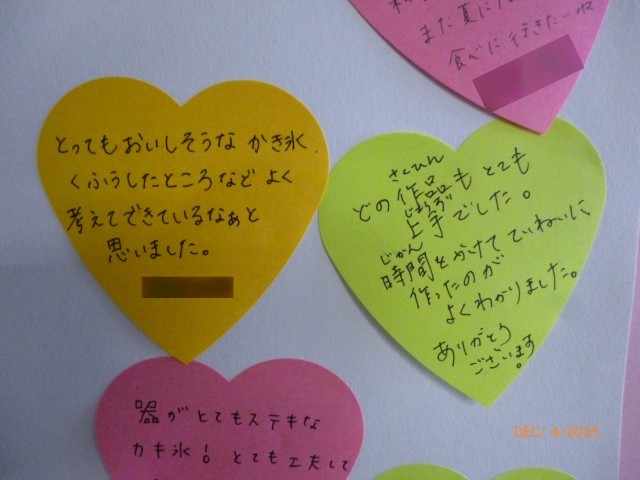 また夏に
食べに行きたいね
とってもおいしそうな かき氷。
くふうしたところなど よく
考えてできているなぁと
思いました。
さくひん
どの作品もとても
じょうず
上手でした。
じかん
時間をかけてていねいに
作ったのが
よくわかりました。
ありがとう
ございます。
器がとてもステキな
カキ氷！とても工夫して
DEC/ 4/2025